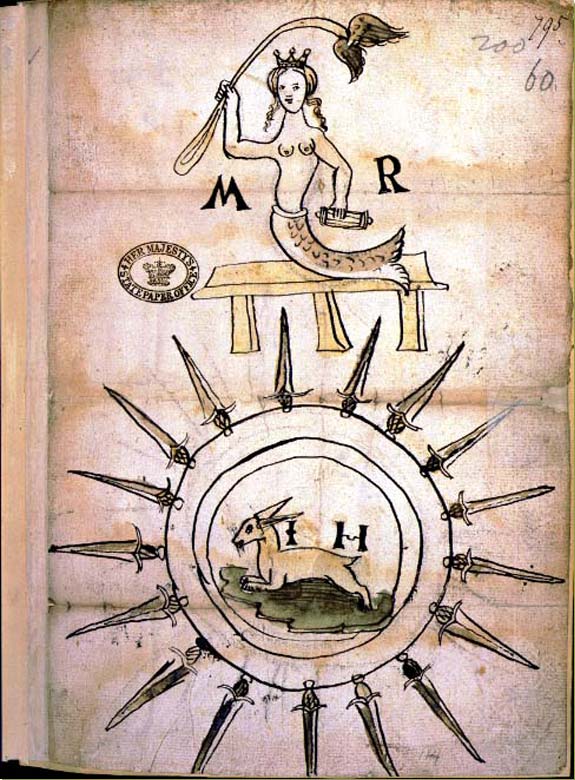 795.
200
60.
M R
HER MAJESTYS
STATE PAPER OFFICE
I H